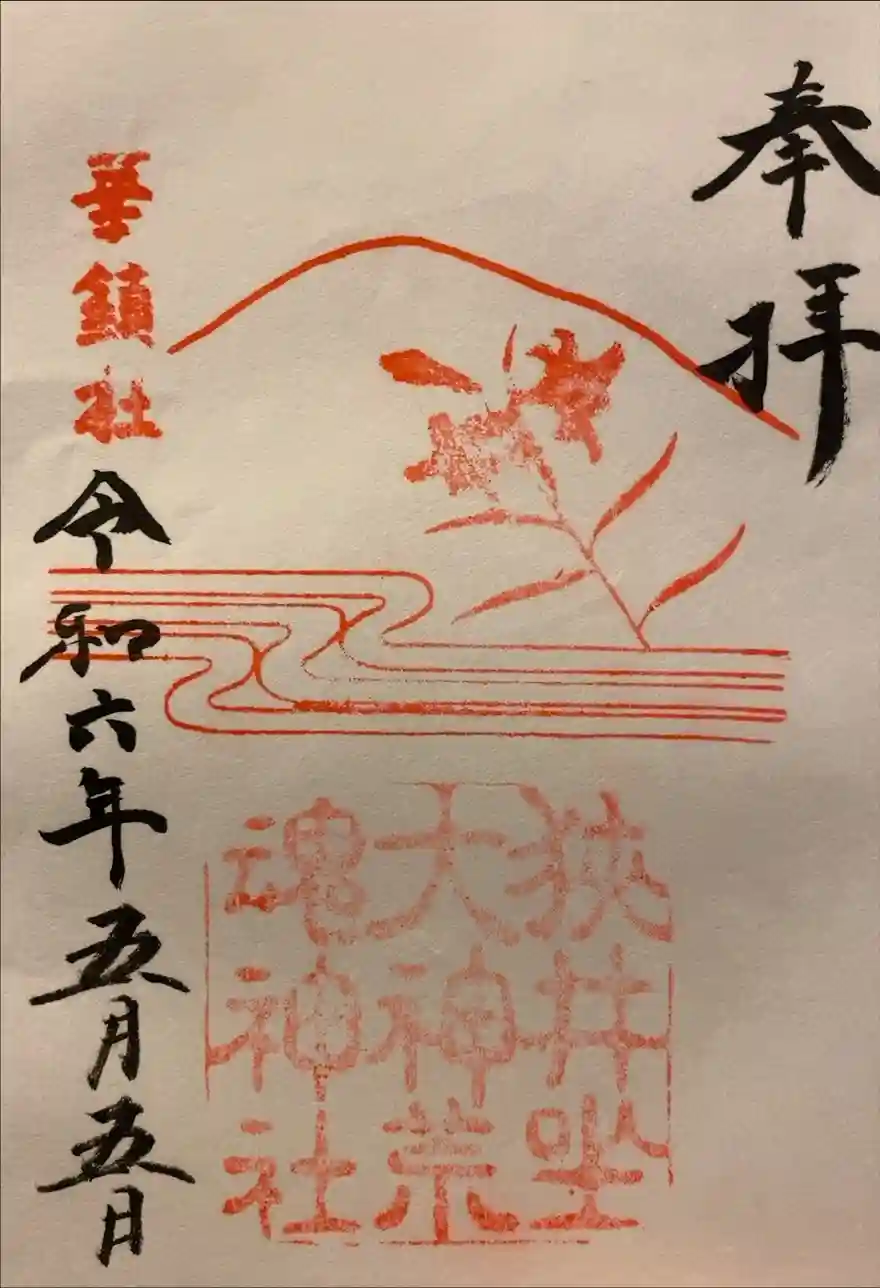 奉拝
狭井坐
大神荒
魂神社
華鎮社
令和六年五月五日